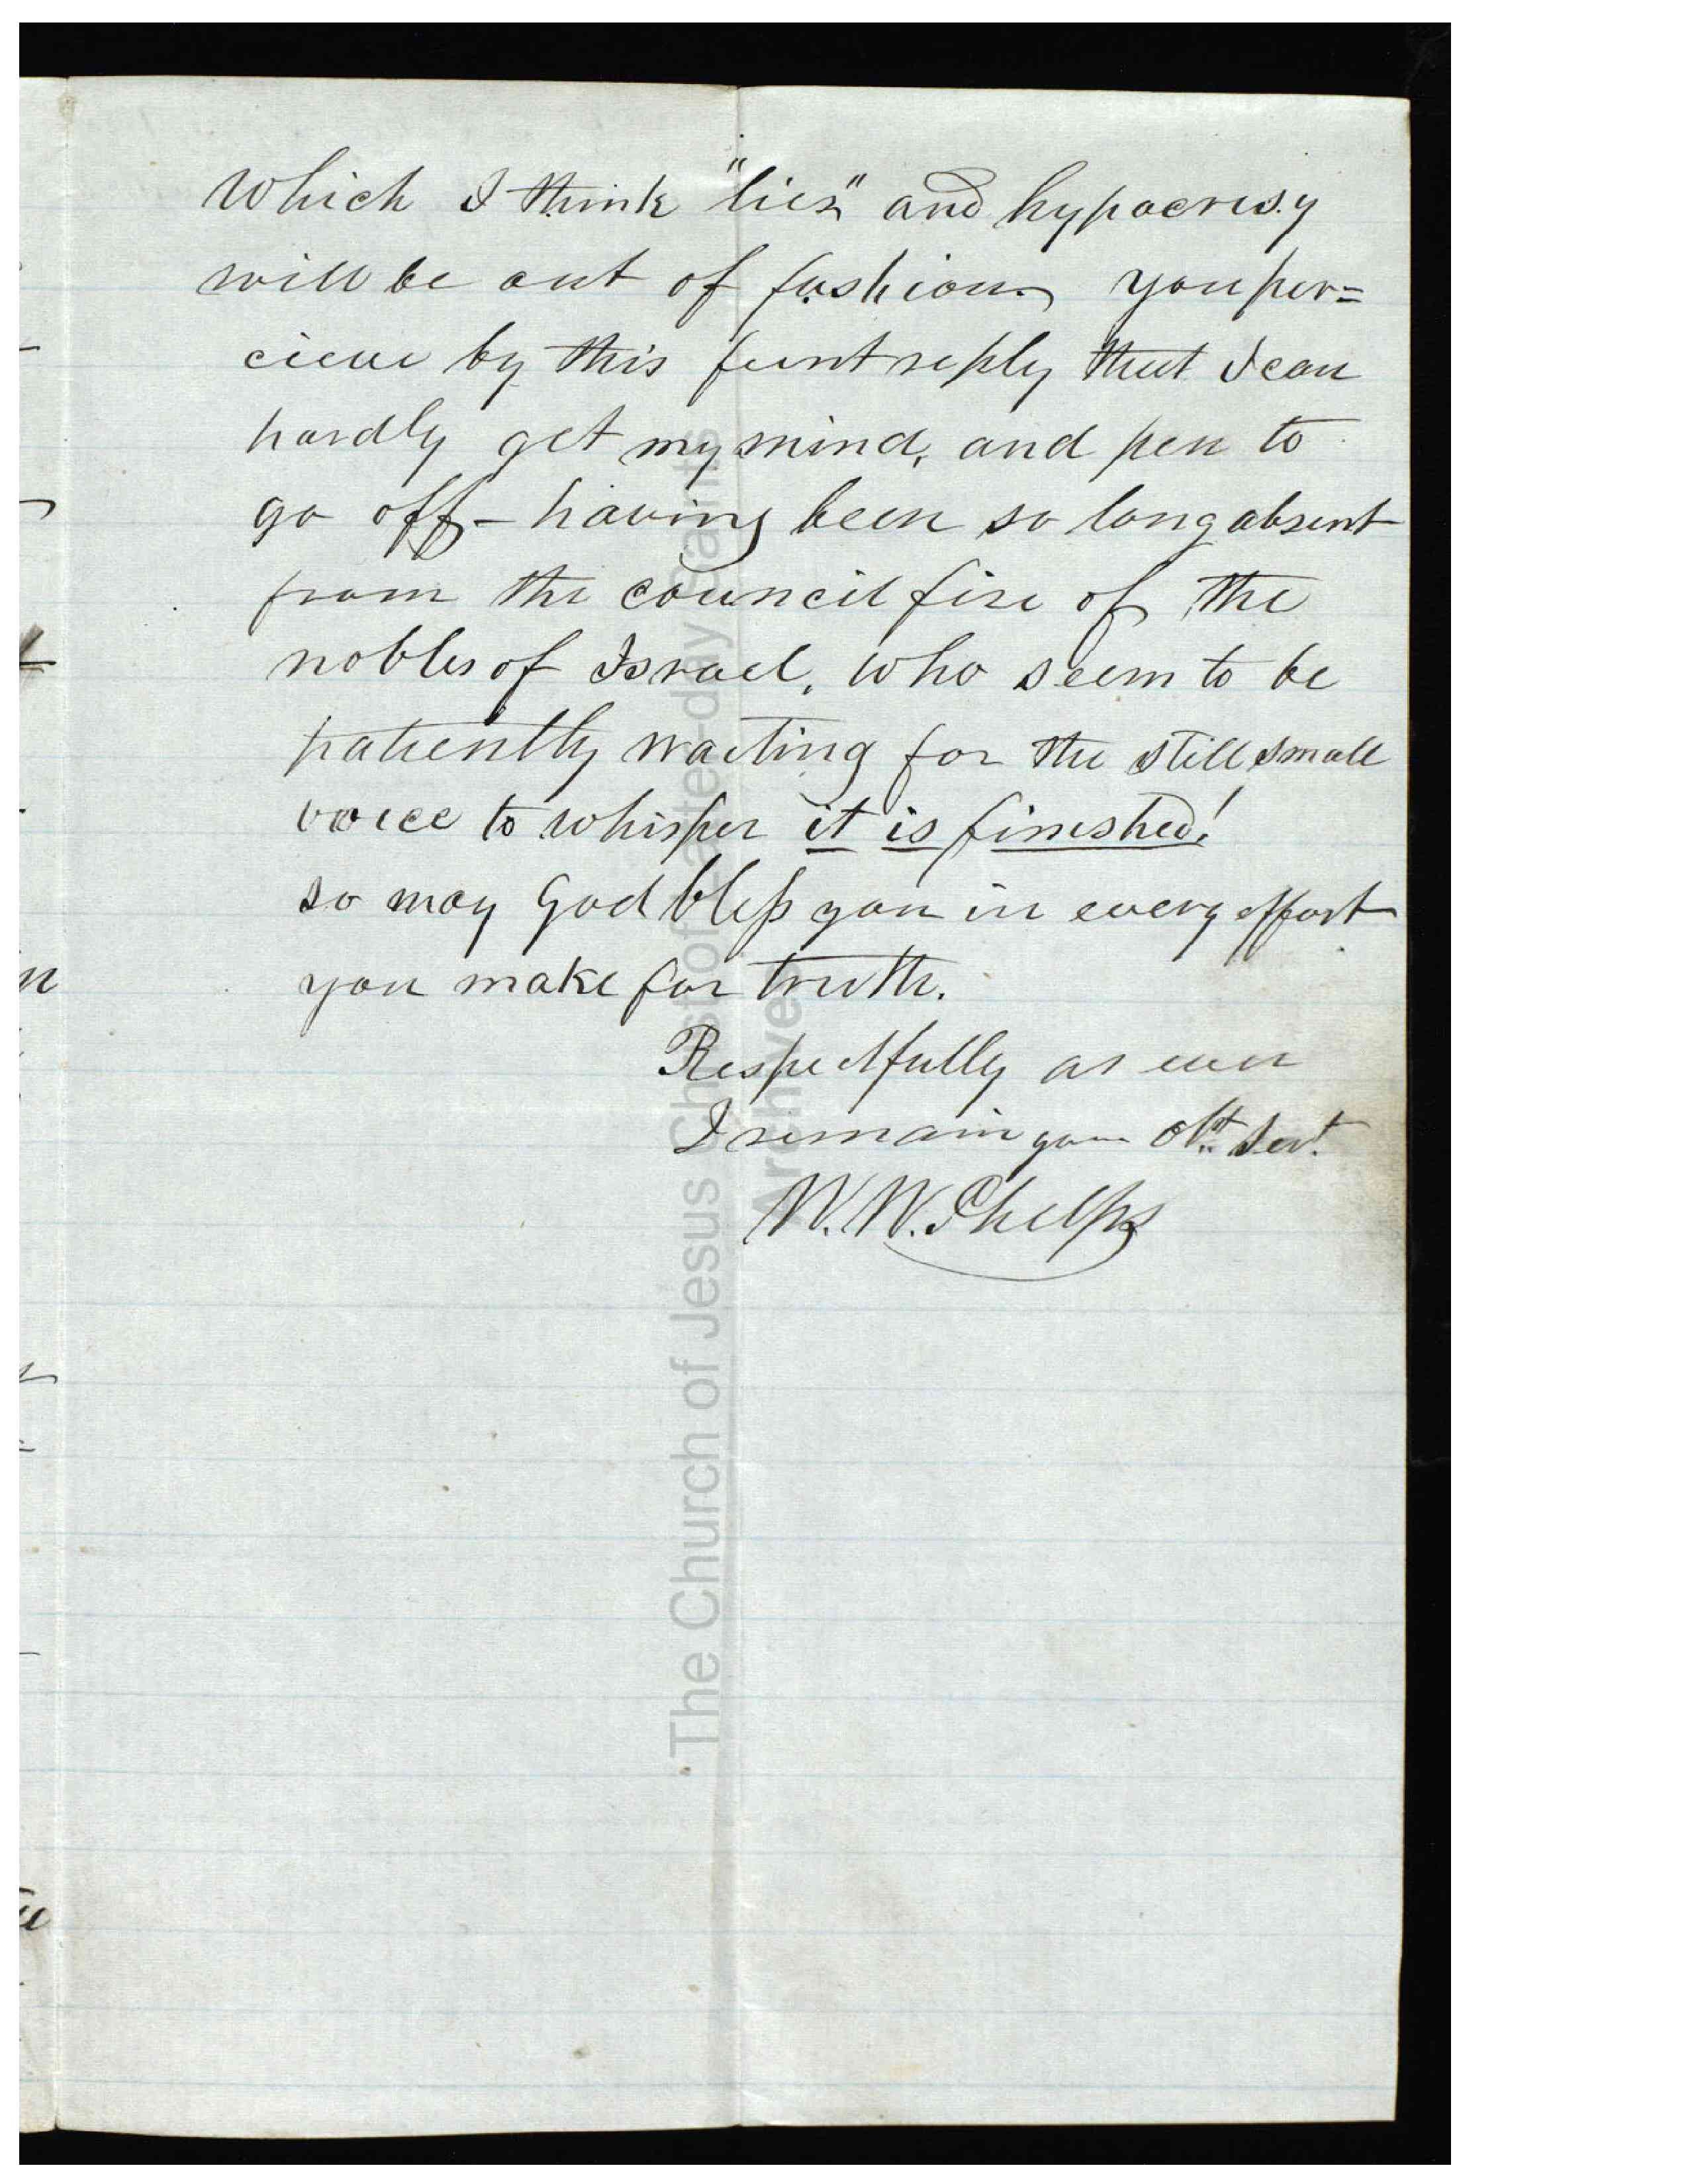 which I think "lies" and hypocrisy
will be out of fashion. you per=
cieve by this faint reply that I can
hardly get my mind, and pen to
go off - having been so long absent
from the council fire of the
nobles of Israel, who seem to be
patiently waiting for the still small
voice to whisper it is finished!
so may God bless you in every effort
you make for truth.
Respectfully as ever
I remain your Obt. Servt.
W. W. Phelps
The Church of Jesus Christ of Latter-day Saints
Archives